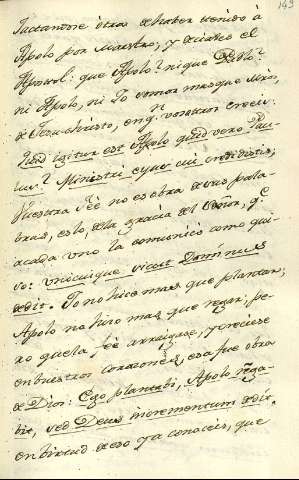 Jactandose otros de haber tenido à
Apolo por Maestro, y deciales el
Apostol: que Apolo? ni que Pablo?
ni Apolo, ni Yo somos mas que Mros,
de Jesu-christo, en qn vosotros creeis.
Quid igitur est Apolo quid vero Pau-
lus? Ministri ejus cui credidistis;
Vuestra fè no es obra de sus pala-
bras, eslo, de la gracia del Señor, qe
à cada uno la comunicò como qui-
so: unicuique sicut Dominus
dedit. Yo no hice mas que plantar;
Apolo no hizo mas que regar; pe-
ro que la fè arraigase, y creciese
en buestros corazones, esa fue obra
de Dios: Ego plantabi, Apolo riga-
bit, sed Deus incrementum dedit.
en birtud de eso ya conoceis, que